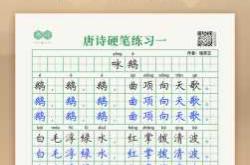 唐诗硬笔练习一
yǒng é
咏鹅
鹅,鹅,鹅,曲项向天歌。
鹅,鹅,鹅,曲项向天歌。
鹅,鹅,鹅,曲项向天歌。
白毛浮绿水,红掌拨清波。
白毛浮绿水,红掌拨清波。